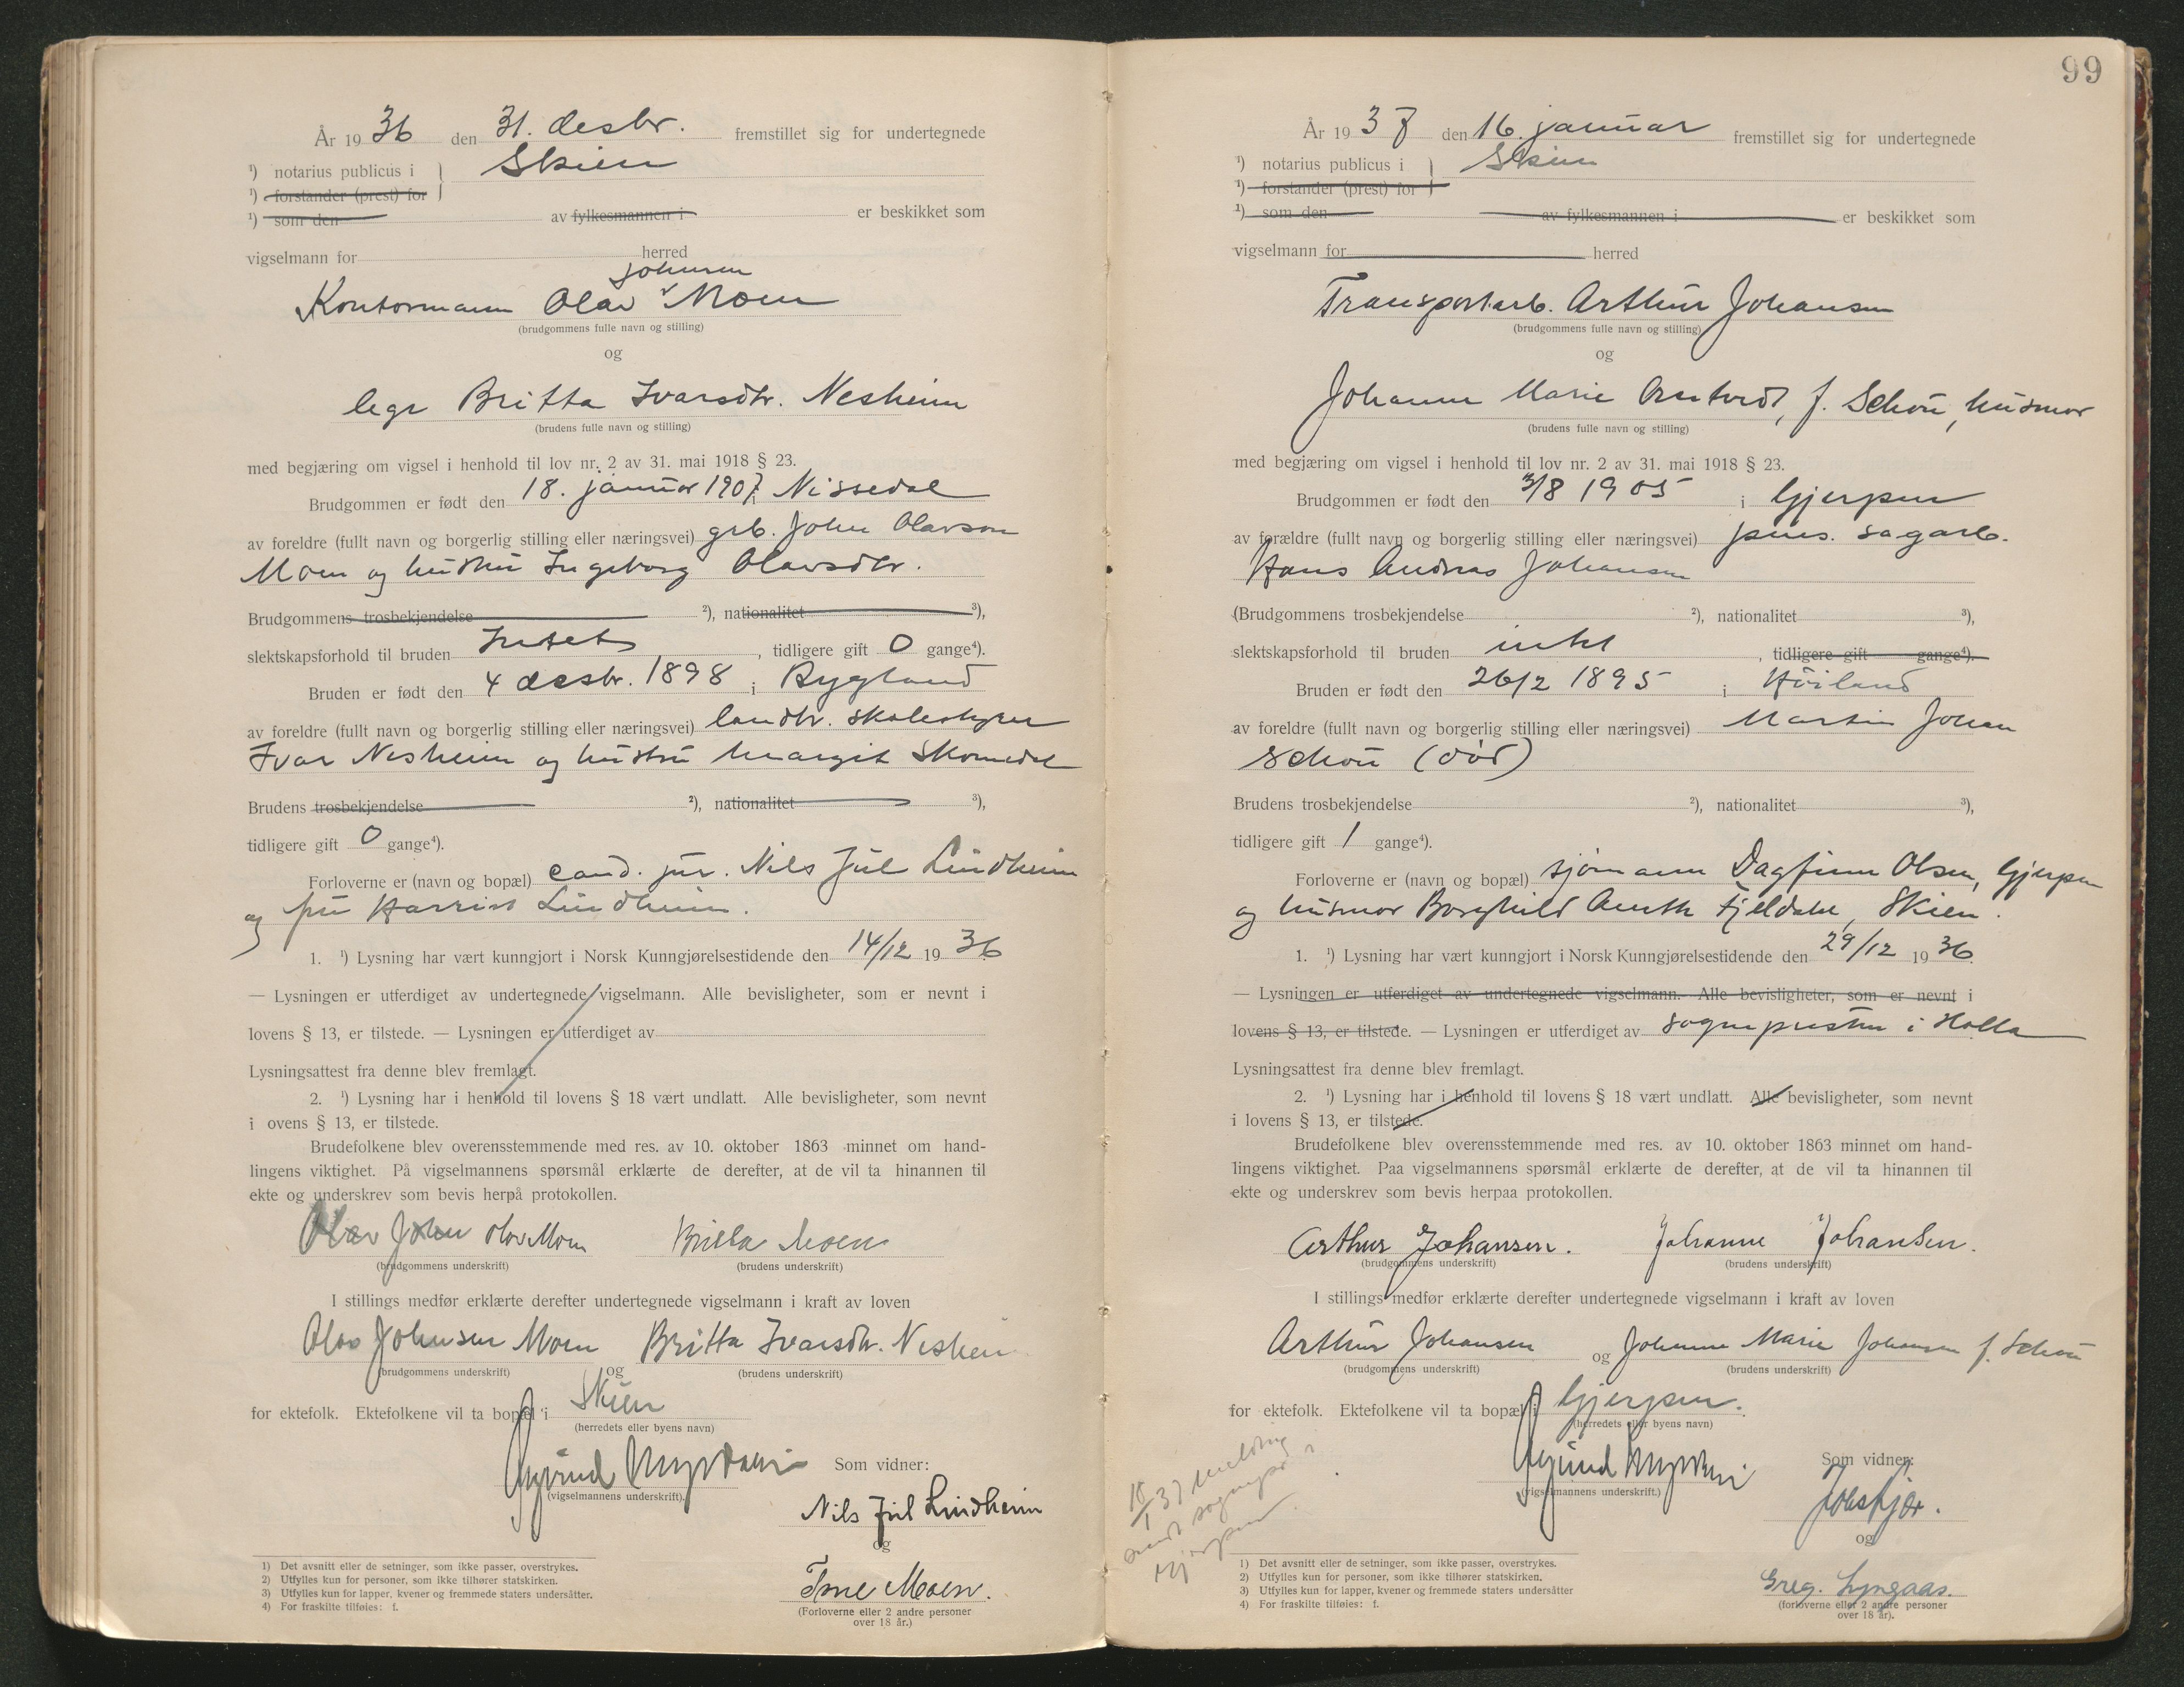 År 1936 den 31. desbr. fremstillet sig for undertegnede
¹) notarius publicus i } Skien
¹) forstander (prest) for
¹) som den av fylkesmannen i er beskikket som
vigselmann for herred
Johnsen
Kontormann Olav Moen
(brudgommens fulle navn og stilling)
og
lege Britta Ivarsdtr. Nesheim
(brudens fulle navn og stilling)
med begjæring om vigsel i henhold til lov nr. 2 av 31. mai 1918 § 23.
Brudgommen er født den 18. januar 1907 i Nissedal
av foreldre (fullt navn og borgerlig stilling eller næringsvei) grb. John Olavson
Moen og hustru Ingeborg Olavsdtr.
Brudgommens trosbekjendelse ²), nationalitet ³),
slektskapsforhold til bruden Intet, tidligere gift 0 gange⁴).
Bruden er født den 4 desbr. 1898 i Bygland
av foreldre (fullt navn og borgerlig stilling eller næringsvei) landbr. skolestyrer
Ivar Nesheim og hustru Margit Skomedal
Brudens trosbekjendelse ²), nationalitet ³),
tidligere gift 0 gange⁴).
Forloverne er (navn og bopæl) cand. jur. Nils Juel Lindheim
og fru Harriet Lindheim.
1. ¹) Lysning har vært kunngjort i Norsk Kunngjørelsestidende den 14/12 1936
— Lysningen er utferdiget av undertegnede vigselmann. Alle bevisligheter, som er nevnt i
lovens § 13, er tilstede. — Lysningen er utferdiget av
Lysningsattest fra denne blev fremlagt.
2. ¹) Lysning har i henhold til lovens § 18 vært undlatt. Alle bevisligheter, som nevnt
i ovens § 13, er tilstede.
Brudefolkene blev overensstemmende med res. av 10. oktober 1863 minnet om hand-
lingens viktighet. På vigselmannens spørsmål erklærte de derefter, at de vil ta hinannen til
ekte og underskrev som bevis herpå protokollen.
Olav John Olav Moen Britta Moen
(brudgommens underskrift) (brudens underskrift)
I stillings medfør erklærte derefter undertegnede vigselmann i kraft av loven
Olav Johnsen Moen og Britta Ivarsdtr. Neshei
(brudgommens underskrift) (brudens underskrift)
for ektefolk. Ektefolkene vil ta bopæl i Skien
(herredets eller byens navn)
(vigselmannens underskrift).
Som vidner:
Nils Juel Lindheim
og
Tone Moen.
(Forloverne eller 2 andre personer
over 18 år.)
1) Det avsnitt eller de setninger, som ikke passer, overstrykes.
2) Utfylles kun for personer, som ikke tilhører statskirken.
3) Utfylles kun for lapper, kvener og fremmede staters undersåtter.
4) For fraskilte tilføies: f.
99
År 1937 den 16. januar fremstillet sig for undertegnede
¹) notarius publicus i } Skien
¹) forstander (prest) for
¹) som den av fylkesmannen i er beskikket som
vigselmann for herred
Transportarb. Arthur Johansen
(brudgommens fulle navn og stilling)
og
Johanne Marie f. Schou, husmor
(brudens fulle navn og stilling)
med begjæring om vigsel i henhold til lov nr. 2 av 31. mai 1918 § 23.
Brudgommen er født den 3/8 1905 i Gjerpen
av forældre (fullt navn og borgerlig stilling eller næringsvei) pens. sagarb.
Hans Andreas Johansen
(Brudgommens trosbekjendelse ²), nationalitet ³),
slektskapsforhold til bruden intet, tidligere gift gange⁴).
Bruden er født den 26/2 1895 i Høiland
av foreldre (fullt navn og borgerlig stilling eller næringsvei) Martin Johan
Schou (død)
Brudens trosbekjendelse ²), nationalitet ³),
tidligere gift 1 gange⁴).
Forloverne er (navn og bopæl) sjømann Dagfinn Olsen, Gjerpen
og husmor Borghild Fjeldahl, Skien.
1. ¹) Lysning har vært kunngjort i Norsk Kunngjørelsestidende den 29/12 1936
— Lysningen er utferdiget av undertegnede vigselmann. Alle bevisligheter, som er nevnt i
lovens § 13, er tilstede. — Lysningen er utferdiget av sognepresten i Holla
Lysningsattest fra denne blev fremlagt.
2. ¹) Lysning har i henhold til lovens § 18 vært undlatt. Alle bevisligheter, som nevnt
i lovens § 13, er tilstede.
Brudefolkene blev overensstemmende med res. av 10. oktober 1863 minnet om hand-
lingens viktighet. Paa vigselmannens spørsmål erklærte de derefter, at de vil ta hinannen til
ekte og underskrev som bevis herpaa protokollen.
Arthur Johansen. Johanne Johansen.
(brudgommens underskrift) (brudens underskrift)
I stillings medfør erklærte derefter undertegnede vigselmann i kraft av loven
Arthur Johansen og Johanne Marie Johansen f. Schou
(brudgommens underskrift) (brudens underskrift)
for ektefolk. Ektefolkene vil ta bopæl i Gjerpen.
(herredets eller byens navn)
(vigselmannens underskrift.)
18/1 37 melding
sendt sognepr. i
Gjerpen.
Som vidner:
og
Greg. Lyngaas.
(forloverne eller 2 andre personer
over 18 år).
1) Det avsnitt eller de setninger, som ikke passer, overstrykes.
2) Utfylles kun for personer, som ikke tilhører statskirken.
3) Utfylles kun for lapper, kvener og fremmede staters undersåtter
4) For fraskilte tilføies: f.